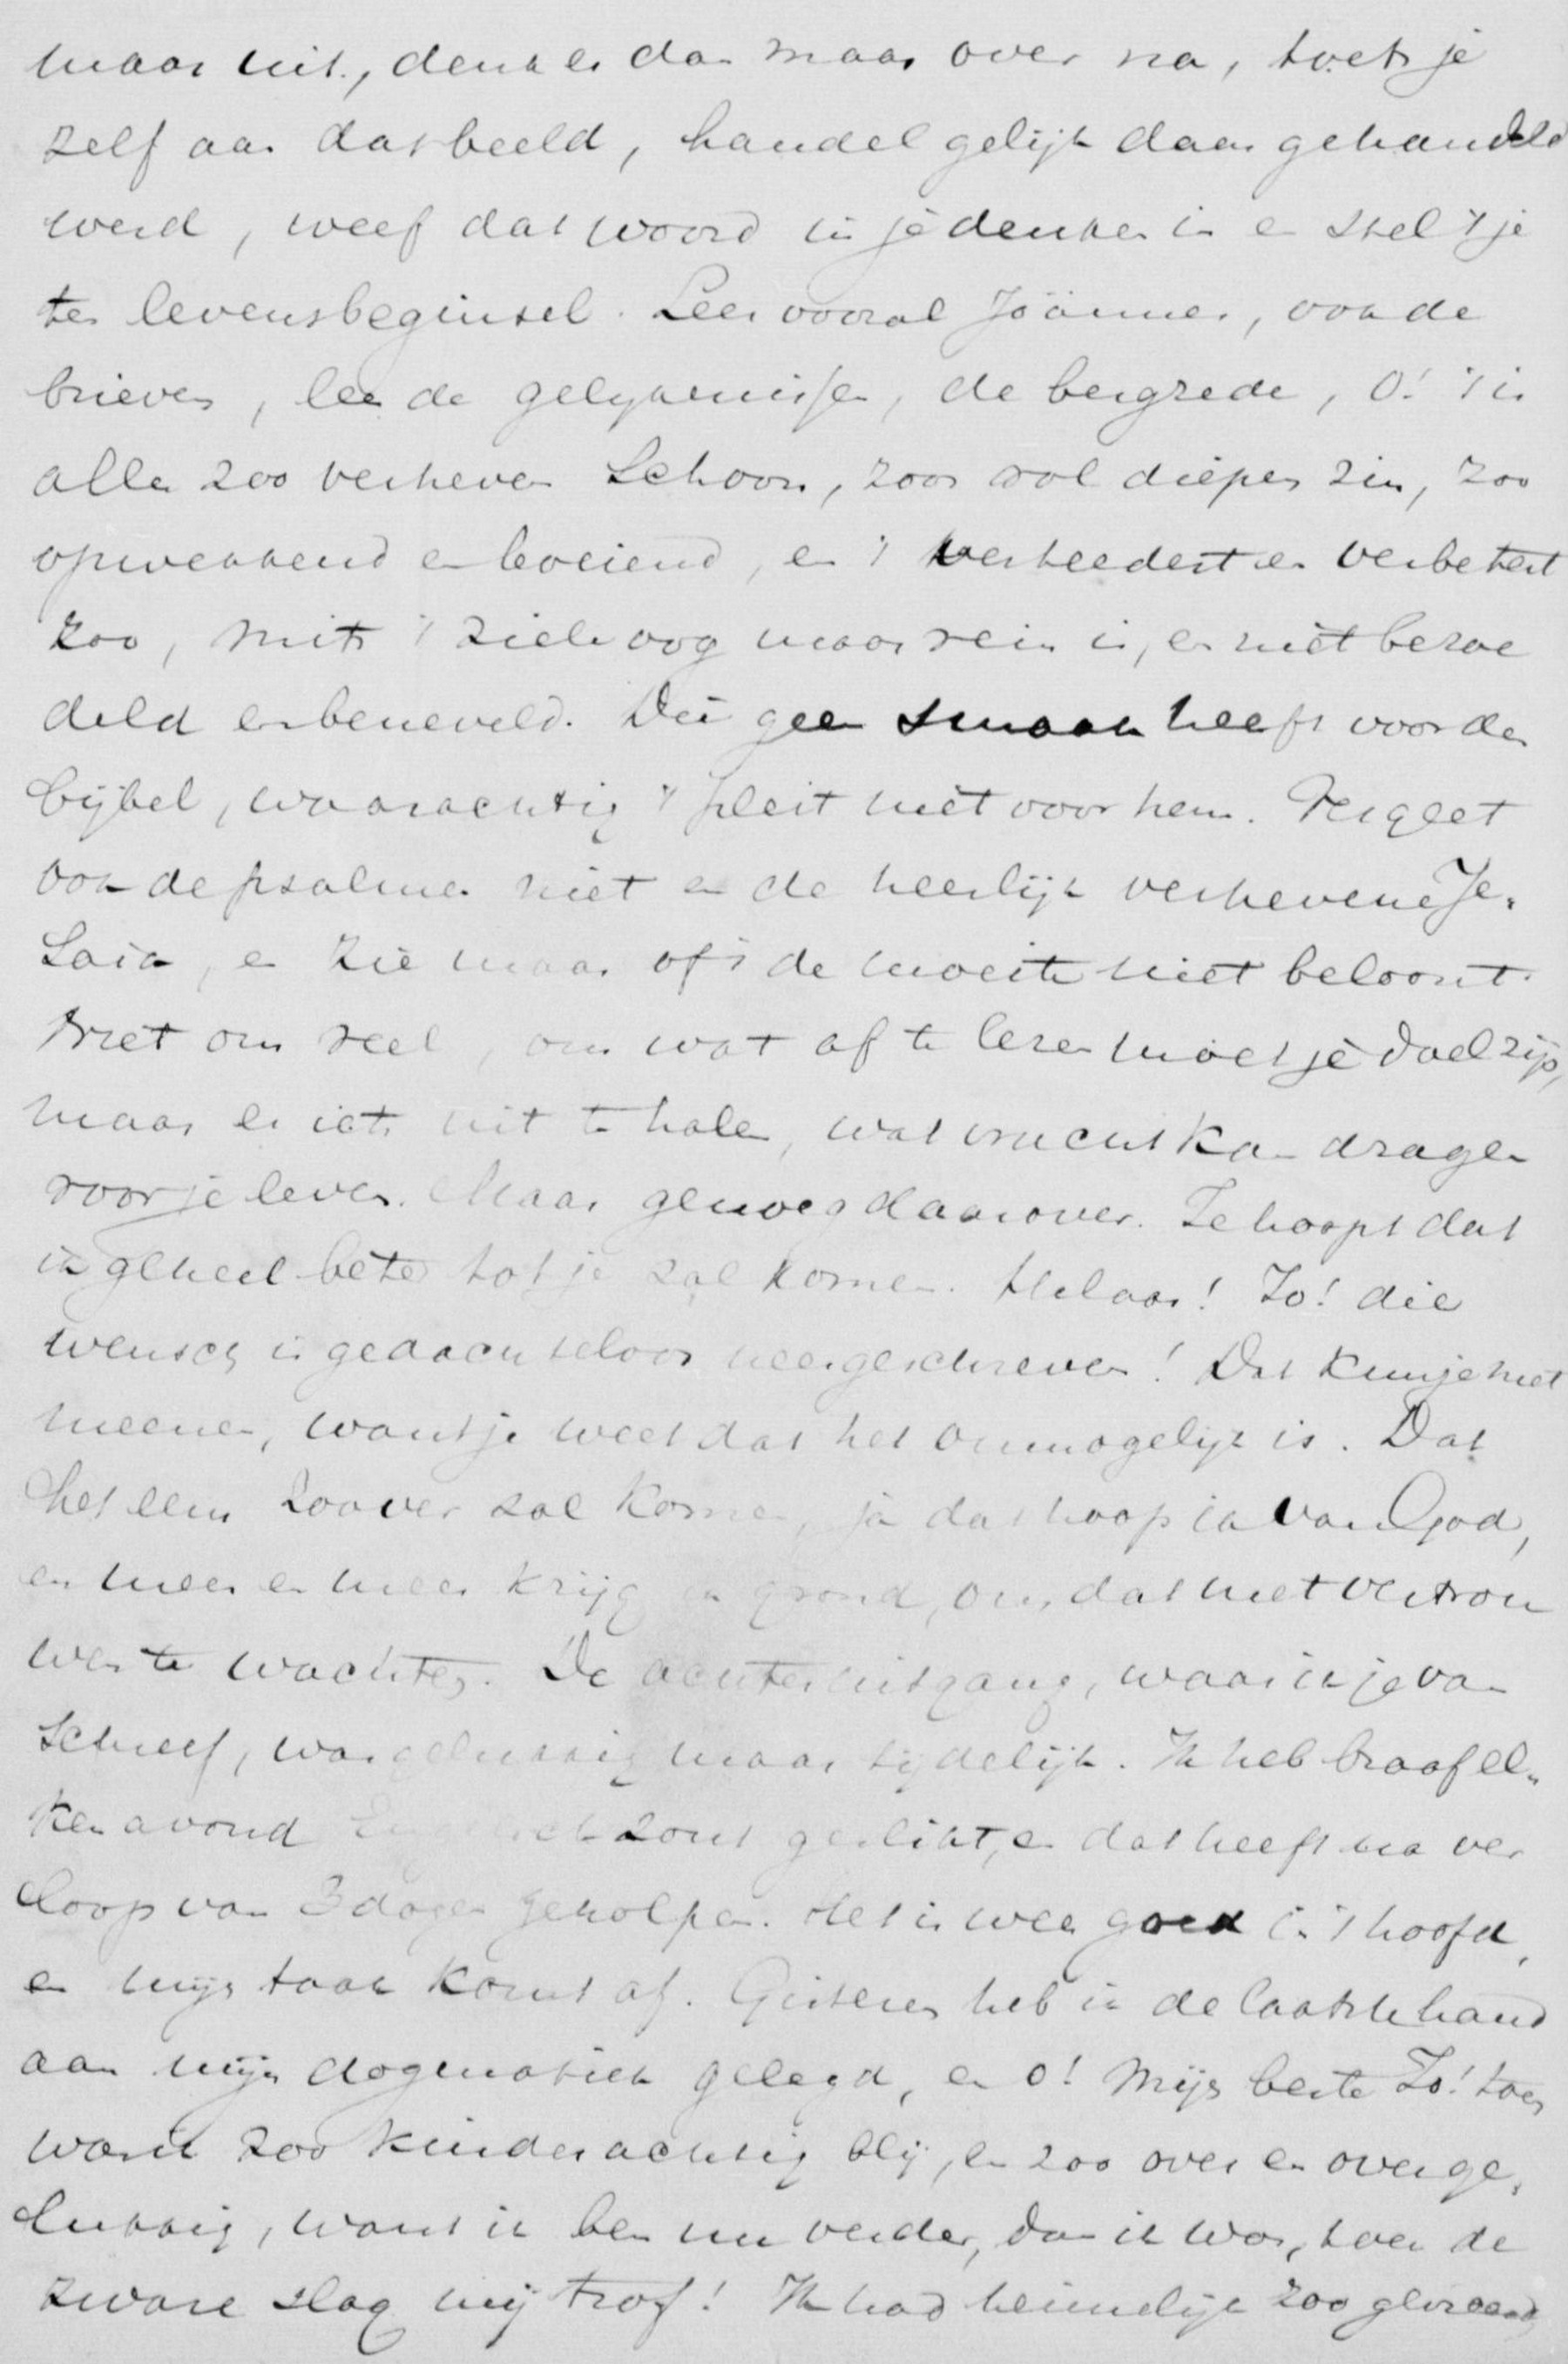 maar uit, denk er dan maar over na, toets je
zelf aan dat beeld, handel gelijk daar gehandeld
werd, weef dat woord in je denken in en stel 't je
ten levensbeginsel. Lees vooral Joännes, ook de
brieven, lees de gelijkenissen, de bergrede, O! 't is
alles zoo verheven schoon, zoo vol diepen zin, zoo
opwekkend en boeiend, en 't veredelt en verbetert
zoo, mits 't zielsoog maar rein is, en niet bezoe
deld en beneveld. Die geen smaak heeft voor den
bijbel, waarachtig 't pleit niet voor hem. Vergeet
ook de psalmen niet en de heerlijk verhevene Je-
saia, en zie maar of 't de moeite niet beloont.
Niet om veel, om wat af te lezen moet je doel zijn,
maar er iets uit te halen, wat vrucht kan dragen
voor je leven. Maar genoeg daarover. Je hoopt dat
ik geheel beter tot je zal komen. Helaas! Jo! die
wensch is gedachteloos neergeschreven! Dat kun je niet
meenen, want je weet dat het onmogelijk is. Dat
het eens zoover zal komen, ja dat hoop ik van God,
en meer en meer krijg ik grond, om dat met vertrou
wen te wachten. De achteruitgang, waar ik je van
schreef, was gelukkig maar tijdelijk. Ik heb braaf el-
ken avond Engelsch zout geslikt, en dat heeft na ver
loop van 3 dagen geholpen. Het is weer goed in 't hoofd,
en mijn taak komt af. Gisteren heb ik de laatste hand
aan mijn dogmatiek gelegd, en o! mijn beste Jo! toen
was ik zoo kinderachtig blij, en zoo over en overge-
lukkig, want ik ben nu verder, dan ik was, toen de
zware slag mij trof! Ik had heimelijk zoo gevreesd,